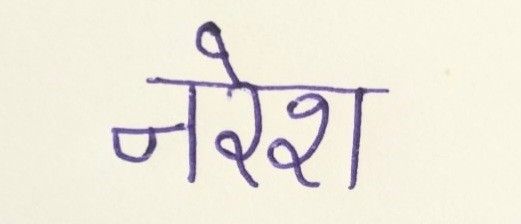 नरेश